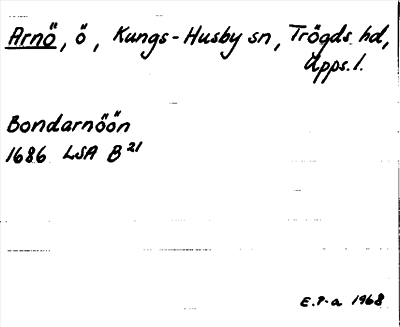 Arnö, ö, Kungs-Husby sn, Trögds hd,
Upps. l.
Bondarnöön
1686 LSA B 21
E.P-a 1968